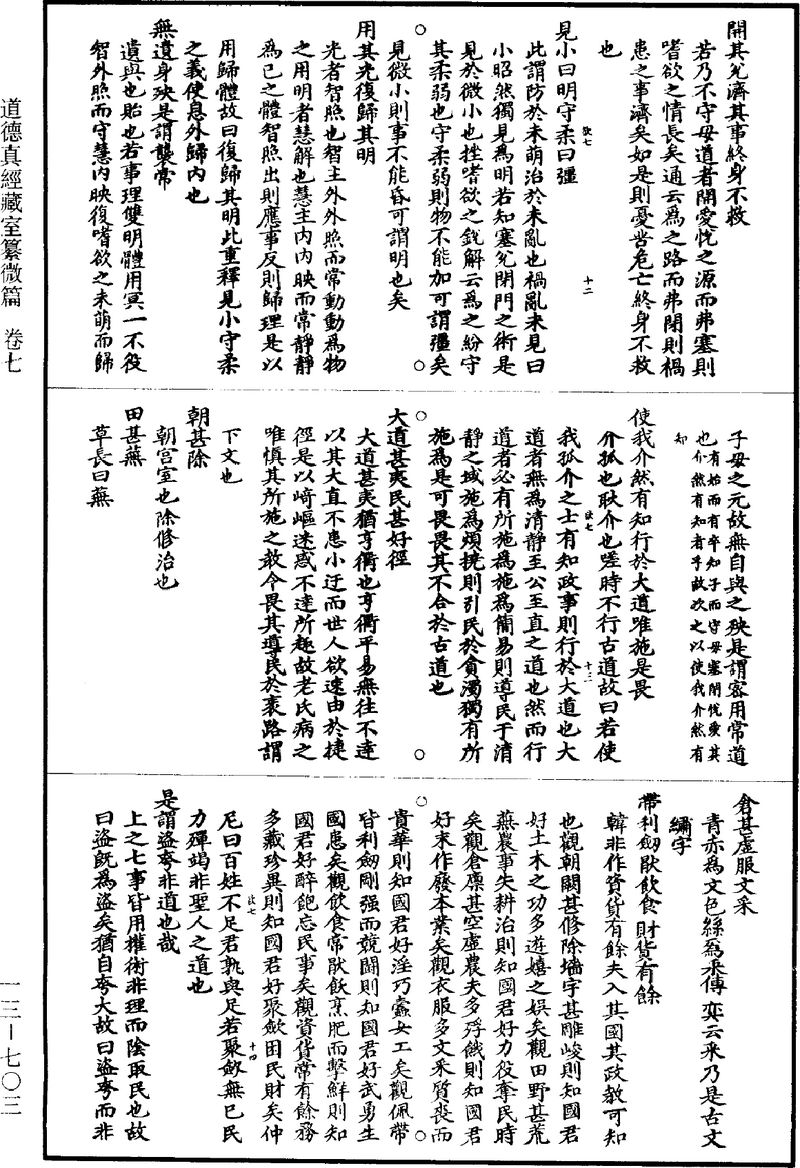 道德真經藏室纂微篇　卷七
一三—七〇三
開其兌濟其事終身不救
若乃不守母道者開愛悅之源而弗塞則
嗜欲之情長矣通云為之路而弗閉則禍
患之事濟矣如是則憂苦危亡終身不救
也
見小曰明守柔曰彊
此謂防於未萌治於未亂也禍亂未見曰
小昭然獨見為明若知塞兌閉門之術是
見於微小也挫嗜欲之銳解云為之紛守
其柔弱也守柔弱則物不能加可謂彊矣
見微小則事不能昏可謂明也矣
用其光復歸其明
光者智照也智主外外照而常動動為物
之用明者慧解也慧主內內映而常靜靜
為己之體智照出則應事反則歸理是以
用歸體故曰復歸其明此重釋見小守柔
之義使息外歸內也
無遺身殃是謂襲常
遺與也貽也若事理雙明體用冥一不役
智外照而守慧內映復嗜欲之未萌而歸
子母之元故無自與之殃是謂密用常道
也有始而有卒知子而守母塞閉悅愛其
介然有知者乎故次之以使我介然有
知
使我介然有知行於大道唯施是畏
介孤也耿介也嗟時不行古道故曰若使
我孤介之士有知政事則行於大道也大
道者無為清靜至公至直之道也然而行
道者必有所施為施為簡易則導民于清
靜之域施為煩撓則引民於貪濁獨有所
施為是可畏畏其不合於古道也
大道甚夷民甚好徑
大道甚夷猶亨衢也亨衢平易無往不達
以其大直不患小迂而世人欲速由於捷
徑是以崎嶇迷惑不達所趣故老氏病之
唯慎其所施之教令畏其導民於衺路謂
下文也
朝甚除
朝宮室也除修治也
田甚蕪
草長曰蕪
倉甚虛服文采
青赤為文色絲為采傳奕云采乃是古文
繡字
帶利劔猒飲食財貨有餘
韓非作資貨有餘夫入其國其政教可知
也觀朝闕甚修除墻宇甚雕峻則知國君
好土木之功多遊嬉之娛矣觀田野甚荒
蕪農事失耕治則知國君好力役奪民時
矣觀倉廩甚空虛農夫多殍餓則知國君
好末作廢本業矣觀衣服多文采質喪而
貴華則知國君好淫巧蠹女工矣觀佩帶
皆利劔剛强而競鬭則知國君好武勇生
國患矣觀飲食常猒飫烹肥而擊鮮則知
國君好醉飽忘民事矣觀資貨常有餘務
多藏珍異則知國君好聚歛困民財矣仲
尼曰百姓不足君孰與足若聚歛無已民
力殫竭非聖人之道也
是謂盜夸非道也哉
上之七事皆用權術非理而陰取民也故
曰盜旣為盜矣猶自夸大故曰盜夸而非